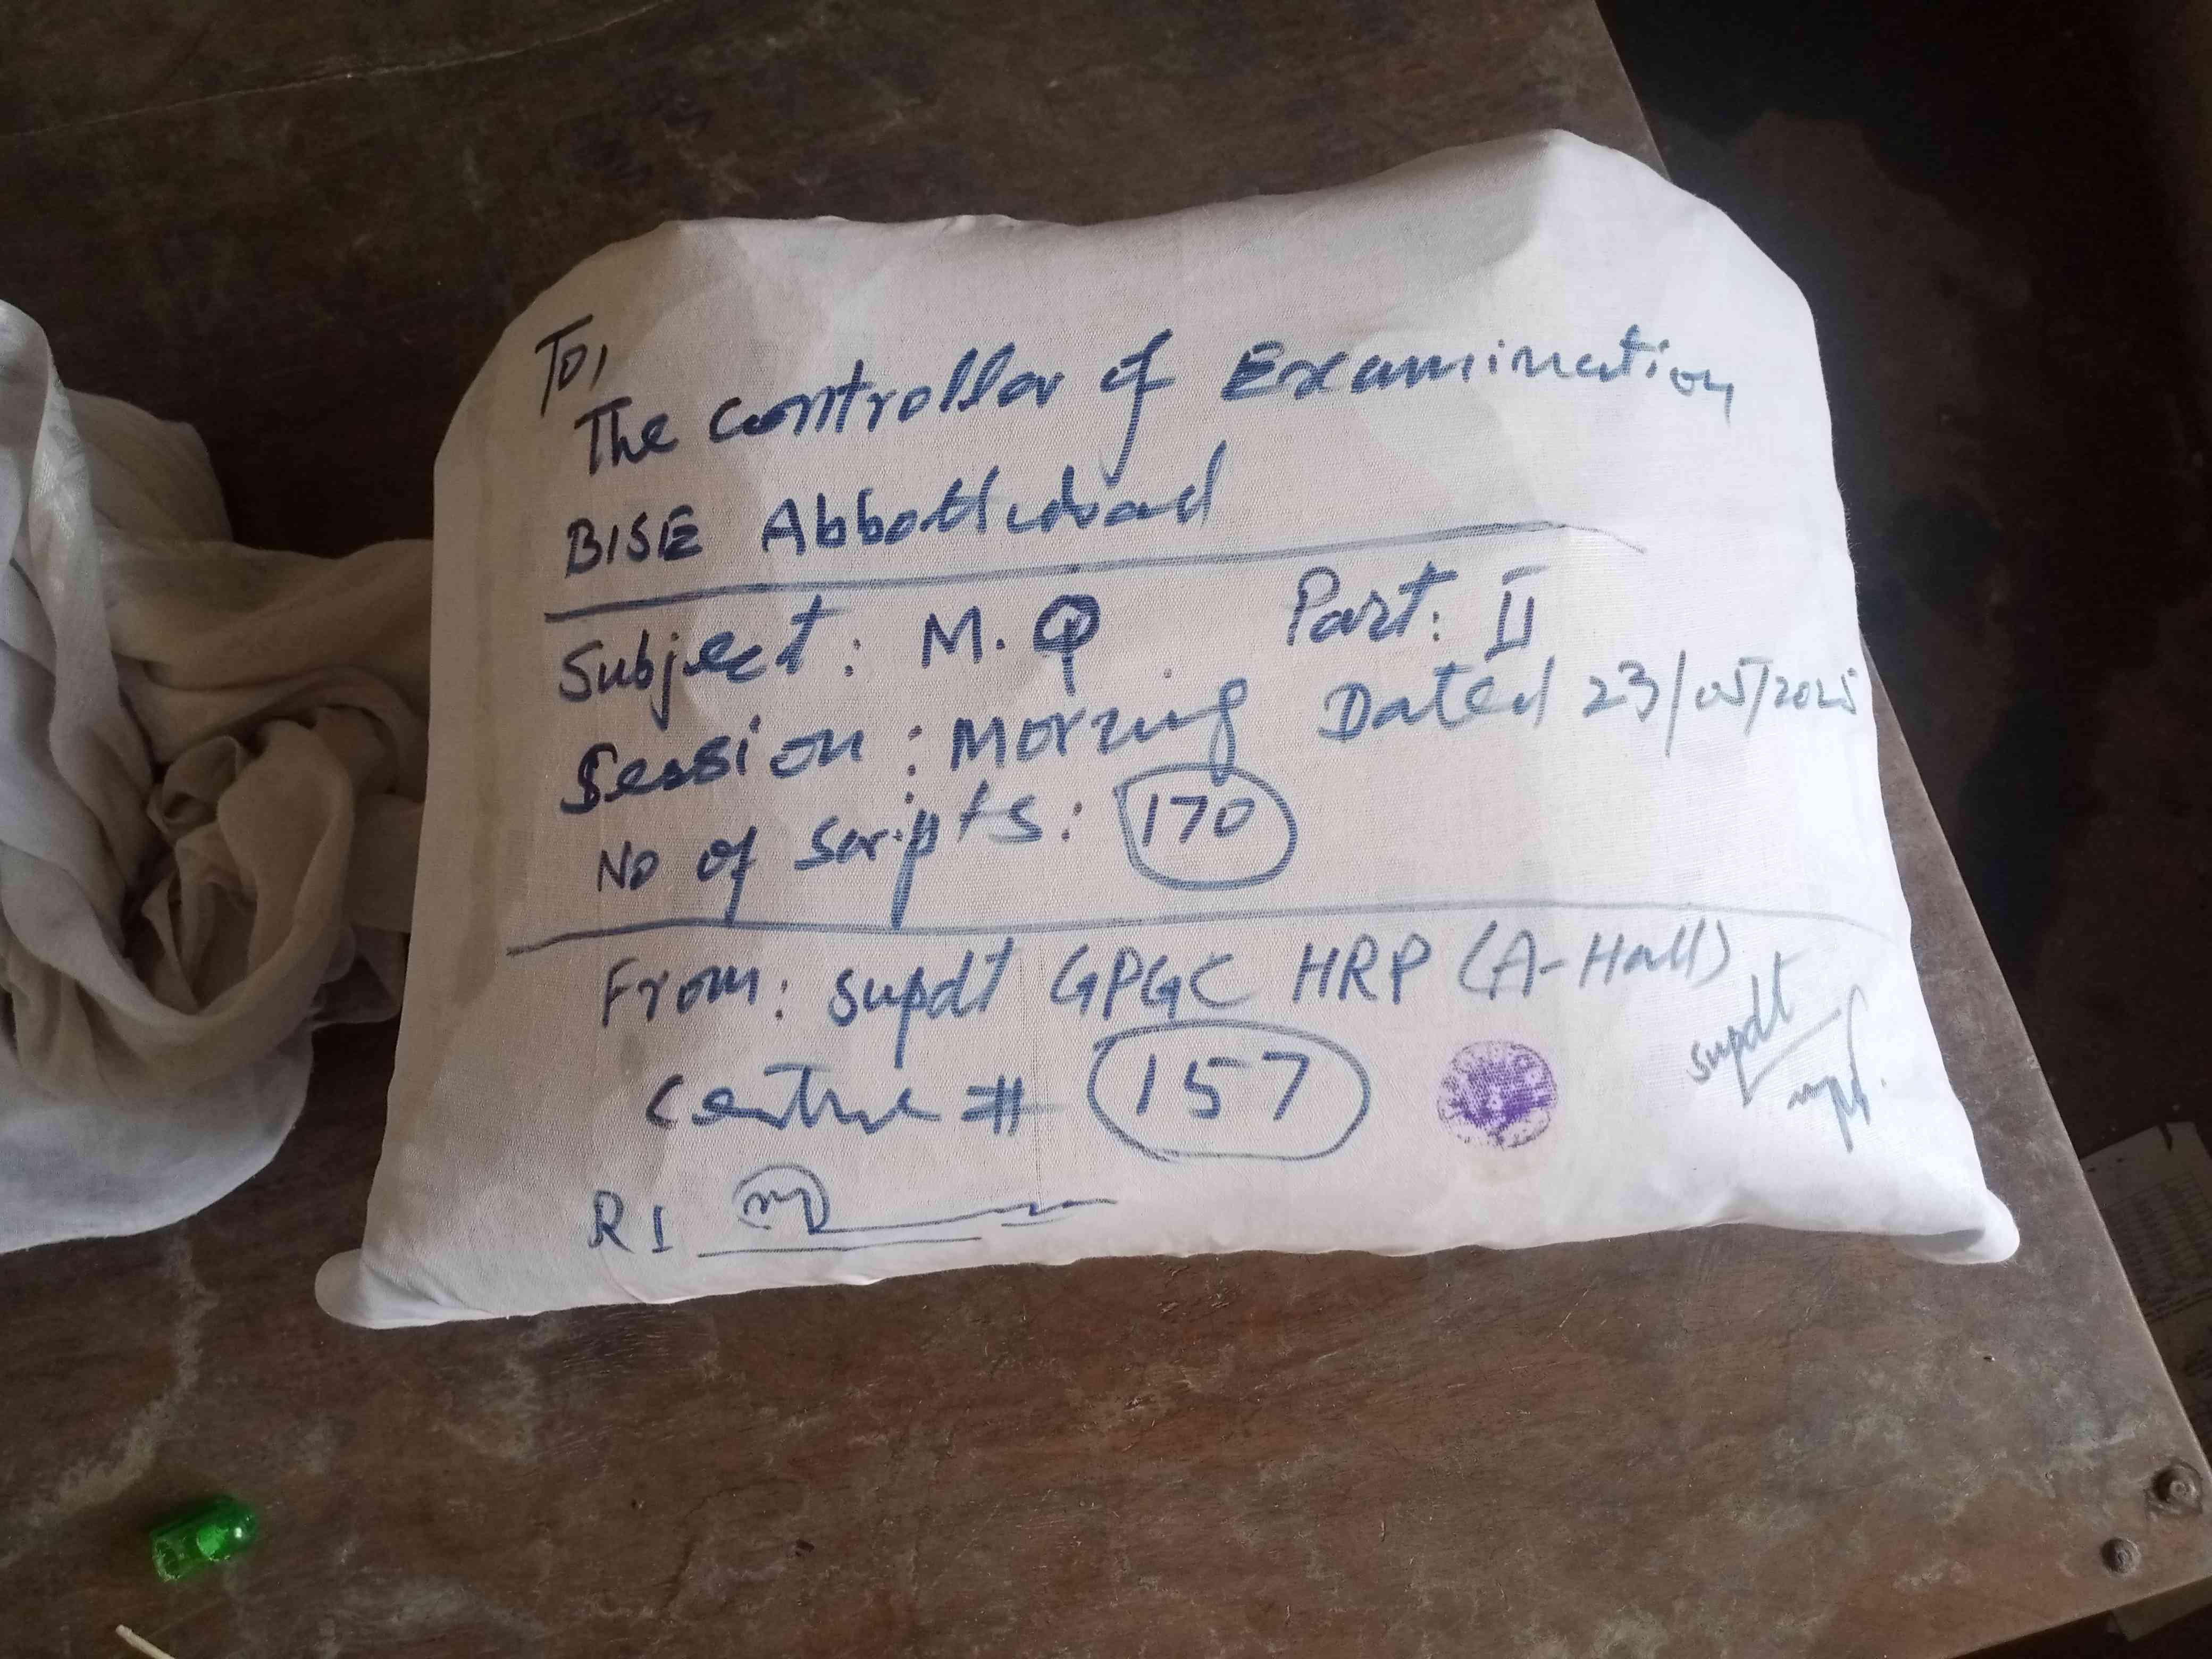 To,
The Controller of Examination
BISE Abbottabad
Subject: M.Q Part: II
Session: Morning Dated 23/05/2025
No of Scripts: 170
From: Supdt GPGC HRP (A-Hall)
Centre # 157
Supdt
R I